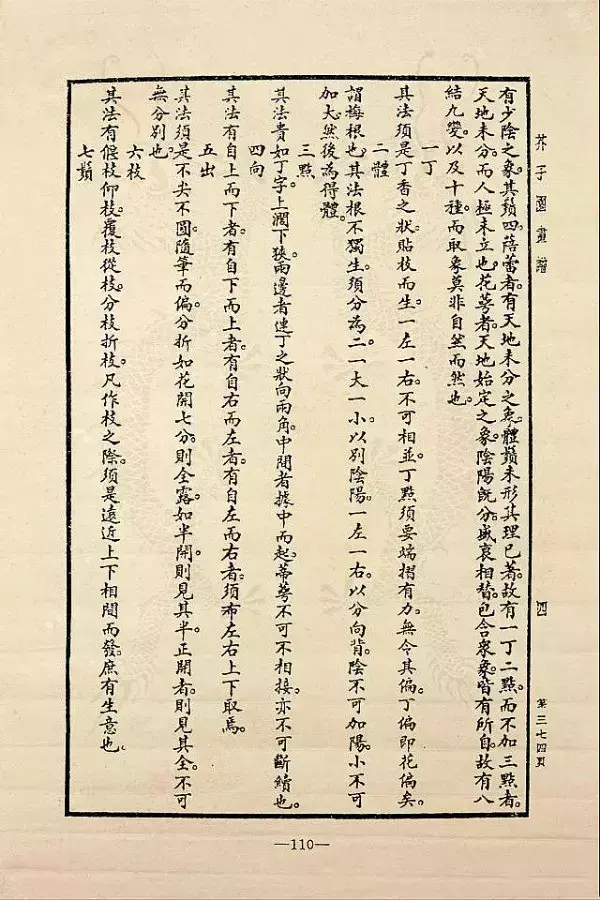 芥子園畫譜
四
第三七四頁
有少陰之象。其鬚四。蓓蕾者。有天地未分之象。體鬚未形。其理已著。故有一丁二點。而不加三點者。
天地未分。而人極未立也。花萼者。天地始定之象。陰陽既分。盛衰相替。包含衆象。皆有所自。故有八
結九變。以及十種。而取象莫非自然而然也。
一丁
其法須是丁香之狀。貼枝而生。一左一右。不可相並。丁點須要端摺有力。無令其偏。丁偏即花偏矣。
二體
謂梅根也。其法根不獨生。須分為二。一大一小。以別陰陽。一左一右。以分向背。陰不可加陽。小不可
加大。然後為得體。
三點
其法貴如丁字。上濶下狹。兩邊者連丁之狀向兩角。中間者據中而起。蒂萼不可不相接。亦不可斷續也。
四向
其法有自上而下者。有自下而上者。有自右而左者。有自左而右者。須布左右上下取焉。
五出
其法須是不尖不圓。隨筆而偏。分折如花開七分。則全露。如半開。則見其半。正開者。則見其全。不可
無分別也。
六枝
其法有偃枝仰枝。覆枝從枝。分枝折枝。凡作枝之際。須是遠近上下相間而發。庶有生意也。
七鬚
—110—